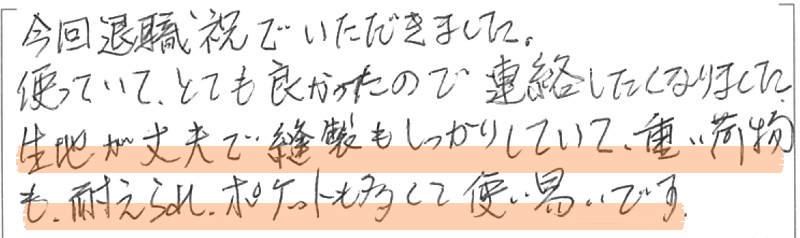 今回退職祝でいただきました。
使っていて、とても良かったので連絡したくなりました。
生地が丈夫で縫製もしっかりしていて、重い荷物
も、耐えられ、ポケットも多くて使い易いです。